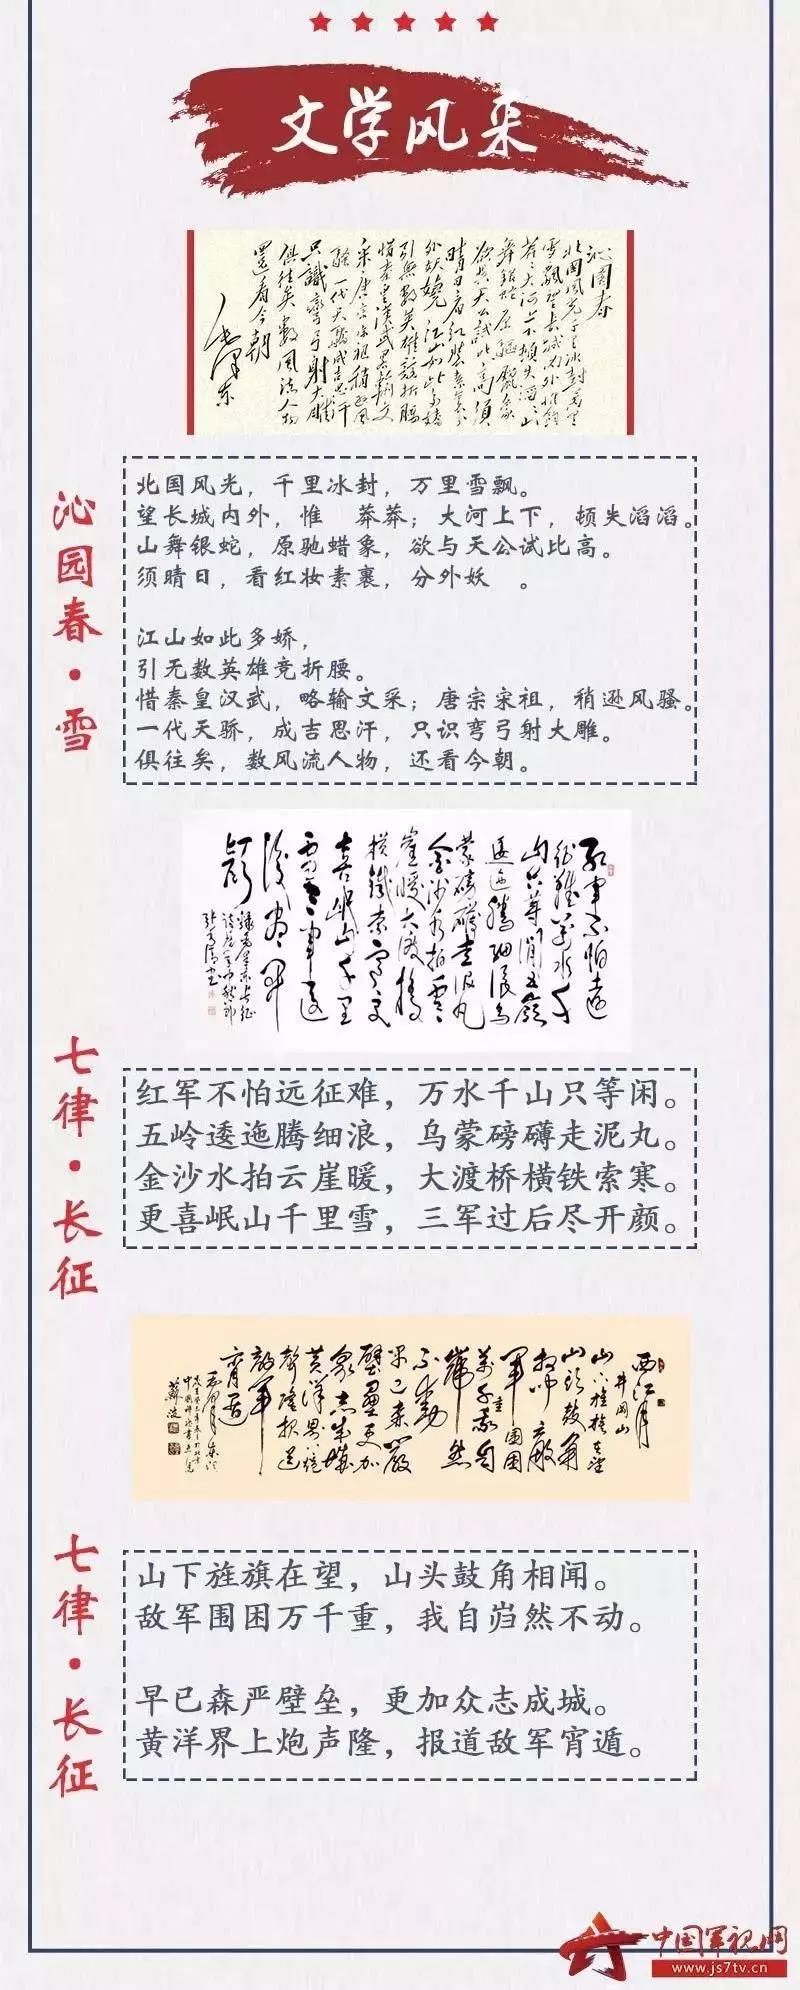 文学风采
沁园春
北国风光千里冰封万里
雪飘望长城内外惟余
莽莽大河上下顿失滔滔山
舞银蛇原驰蜡象
欲与天公试比高须
晴日看红装素裹分
外妖娆江山如此多娇
引无数英雄竞折腰
惜秦皇汉武略输文
采唐宗宋祖稍逊风
骚一代天骄成吉思汗
只識彎弓射大雕
俱往矣數风流人物
還看今朝
毛泽东
沁园春·雪
北国风光，千里冰封，万里雪飘。
望长城内外，惟 莽莽；大河上下，顿失滔滔。
山舞银蛇，原驰蜡象，欲与天公试比高。
须晴日，看红妆素裹，分外妖 。
江山如此多娇，
引无数英雄竞折腰。
惜秦皇汉武，略输文采；唐宗宋祖，稍逊风骚。
一代天骄，成吉思汗，只识弯弓射大雕。
俱往矣，数风流人物，还看今朝。
七律·长征
红军不怕远征难，万水千山只等闲。
五岭逶迤腾细浪，乌蒙磅礴走泥丸。
金沙水拍云崖暖，大渡桥横铁索寒。
更喜岷山千里雪，三军过后尽开颜。
西江月
井岡山
山下旌旗在望
山头鼓角
相闻敵
軍圍困
萬千重我自
巋然
不動
早已森嚴
壁壘更加
眾志成城
黄洋界上炮
聲隆报道
敵軍
宵遁
七律·长征
山下旌旗在望，山头鼓角相闻。
敌军围困万千重，我自岿然不动。
早已森严壁垒，更加众志成城。
黄洋界上炮声隆，报道敌军宵遁。
中国军视网
www.js7tv.cn